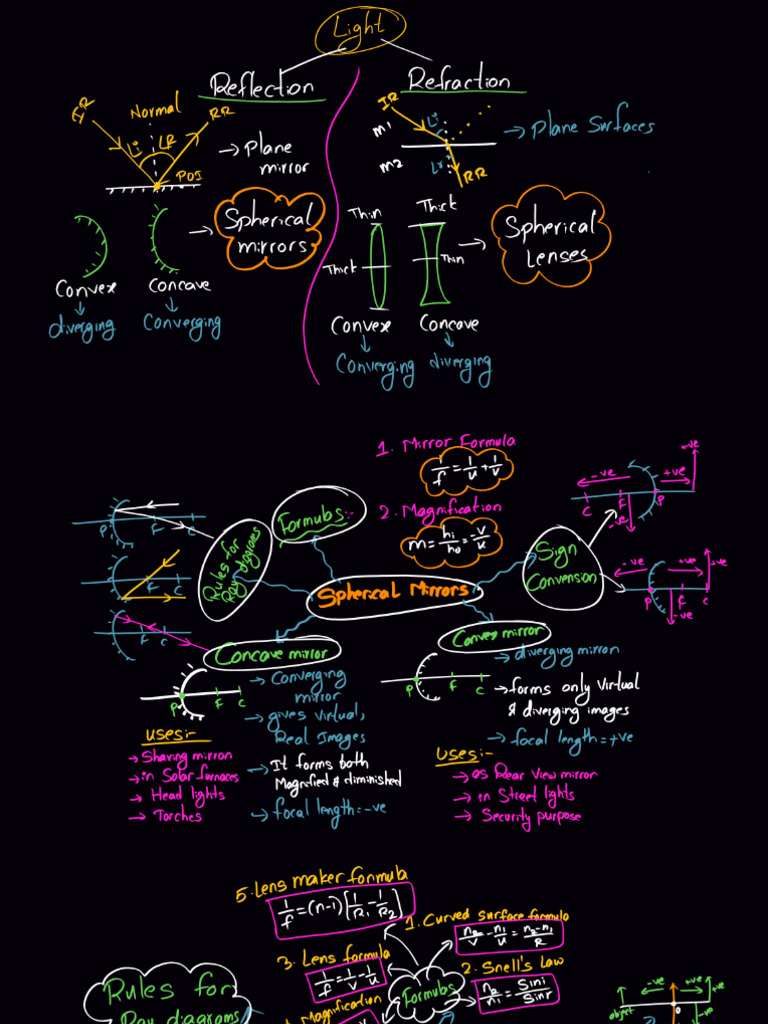 Light
Reflection
Refraction
IR
Normal
RR
Li
Lr
POI
→ Plane
mirror
Convex
Concave
diverging
Converging
→ Spherical
mirrors
IR
m1
m2
Li
Lr
RR
→ Plane Surfaces
Thin
Thick
Thick
Thin
→ Spherical
Lenses
Convex
Concave
Converging
diverging
1. Mirror Formula
1/f = 1/u + 1/v
2. Magnification
m = hi/ho = -v/u
Formulas:-
Rules for
Ray diagrams
P F C
F C
F C
Spherical Mirrors
Sign
Convension
-ve
+ve
-ve
C F P
-ve
-ve
+ve
+ve
P F C
-ve
Concave mirror
P F C
→ Converging
mirror
→ gives virtual,
Real Images
→ It forms both
Magnified & diminished
→ focal length = -ve
uses:-
→ Shaving mirron
→ in Solar furnaces
→ Head lights
→ Torches
Convex mirror
P F C
→ diverging mirron
→ forms only Virtual
& diverging images
→ focal length = +ve
uses:-
→ as Rear View mirron
→ in Street lights
→ Security purpose
5. Lens maker formula
1/f = (n-1) [1/R1 - 1/R2]
1. Curved surface formula
n2/v - n1/u = n2-n1/R
3. Lens formula
1/f = 1/v - 1/u
2. Snell's Law
n2/n1 = Sini/Sinr
Formulas
Magnification
Rules for
Ray diagrams
-ve
+ve
+ve
object
o
-ve